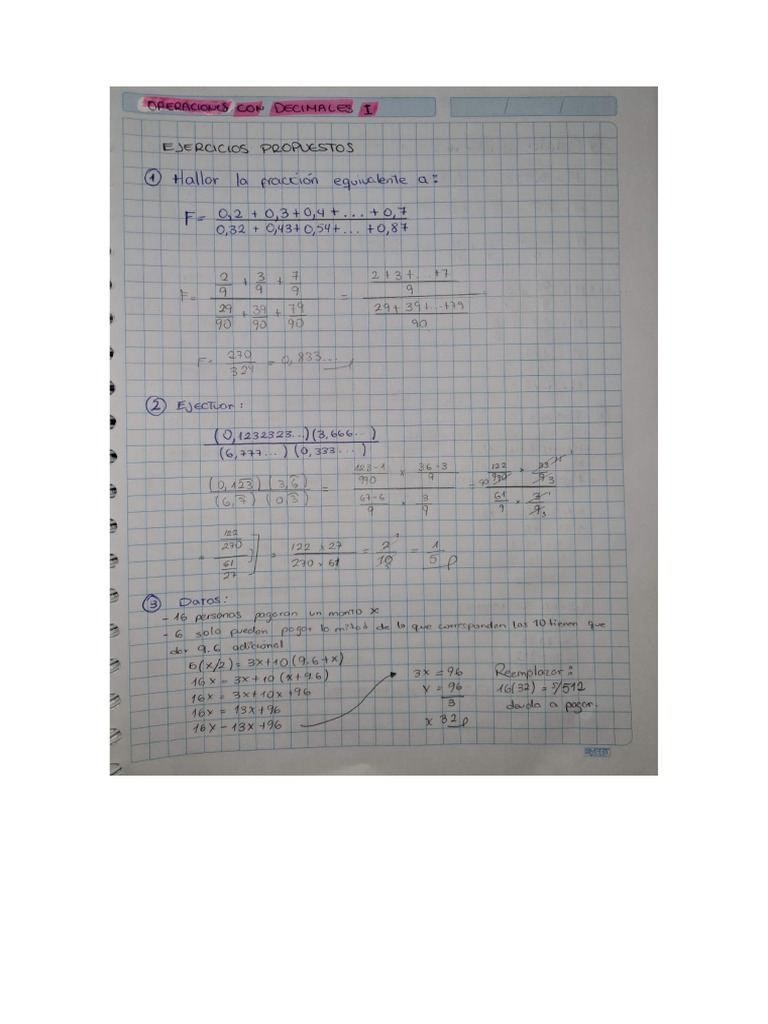 OPERACIONES CON DECIMALES I
EJERCICIOS PROPUESTOS
① Hallor la fracción equivalente a:
F= (0,2 + 0,3 + 0,4 + ... + 0,7) / (0,32 + 0,43 + 0,54 + ... + 0,87)
F= (2/9 + 3/9 + 7/9) / (29/90 + 39/90 + 79/90) = ((2+3+...+7)/9) / ((29+39+...+79)/90)
F= 270/324 = 0,833...
② Ejectuor:
(0,1232323...)(3,666...) / (6,777...)(0,333...)
(0,123)(3,6) / (6,7)(0,3) = (123-1)/990 × (36-3)/9 / (67-6)/9 × 3/9 = 122/990 × 33/9 3 / 61/9 × 3/9 3
= 122/270 / 61/27 = 122 × 27 / 270 × 61 = 2/10 = 1/5
③ Datos:
- 16 personas pagaran un monto x
- 6 solo pueden pagar la mitad de lo que corresponden las 10 tienen que
dar 9.6 adicional
6(x/2) = 3x+10(9.6+x)
16x = 3x+10(x+9.6)
16x = 3x+10x+96
16x = 13x+96
16x - 13x+96
3x = 96
x = 96/3
x 32
Reemplazor:
16(32) = s/512
deuda a pagar.